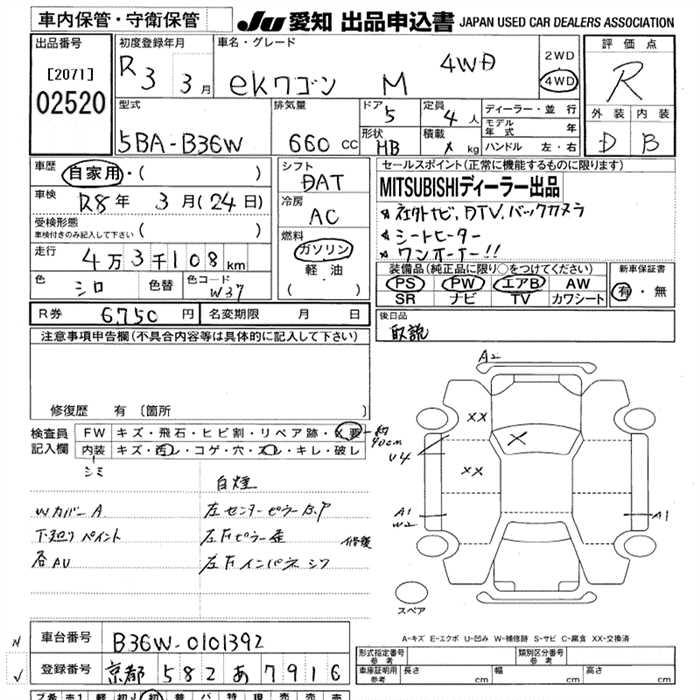 車内保管・守衛保管
JU 愛知 出品申込書 JAPAN USED CAR DEALERS ASSOCIATION
出品番号
[2071]
02520
初度登録年月
R3 3月
車名・グレード
ekワゴン M 4WD
2WD
4WD
評価点
R
外装 内装
D B
型式
5BA-B36W
排気量
660 CC
ドア
5
形状
HB
定員
4人
積載
x kg
ディーラー・並行
モデル年式 年
ハンドル 左・右
車歴
自家用・( )
車検
R8年 3月(24日)
受検形態
車検付きのみ記入して下さい ( )
走行
4万3千108km
色
シロ
色替
色コード
W37
シフト
DAT
冷房
AC
燃料
ガソリン
軽油
( )
セールスポイント(正常に機能するものに限ります)
MITSUBISHIディーラー出品
社外ナビ、DTV、バックカメラ
シートヒーター
ワンオーナー!!
装備品(純正品に限り○をつけてください)
PS PW エアB AW
SR ナビ TV カワシート
新車保証書
有・無
R券 6750円
名変期限 月 日
後日品
取説
注意事項申告欄(不具合内容等は具体的に記入して下さい)
修復歴 有 〔箇所 〕
検査員記入欄
FW キズ・飛石・ヒビ割・リペア跡・X要 約40cm
内装 キズ・凹・コゲ・穴・スレ・キレ・破レ
シミ
Wカバー A
下廻り ペイント
各AU
自煙
左センターピラー B.P
左Fピラー 歪 修復
左Fインパネ シワ
A2
XX
X
U4
XX
A1
W2
A1
スペア
A-キズ E-エクボ U-凹み W-補修跡 S-サビ C-腐食 XX-交換済
N
車台番号
B36W-0101392
登録番号
京都 582 あ 7916
形式指定番号 参考
類別区分番号 参考
車庫証明用 参考
長さ cm
幅 cm
高さ cm